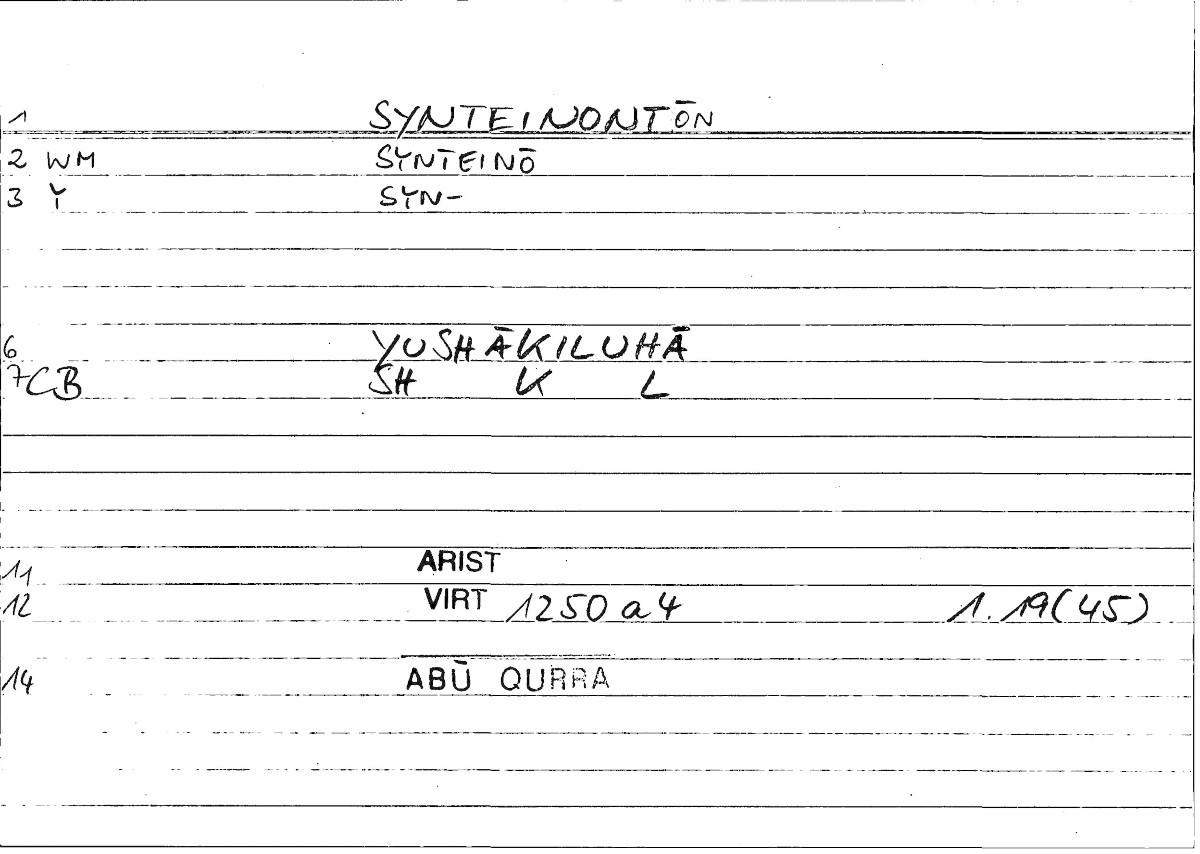 1 SYNTEINONTŌN
2 WM SYNTEINŌ
3 Y SYN-
6 YUSHĀKILUHĀ
7 CB SH K L
11 ARIST
12 VIRT 1250 a 4 1. 19(45)
14 ABŪ QURRA